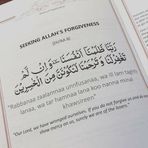 SEEKING ALLAH'S FORGIVENESS
رَبَّنَا ظَلَمْنَا أَنْفُسَنَا وَإِنْ لَمْ
تَغْفِرْ لَنَا وَتَرْحَمْنَا لَنَكُونَنَّ مِنَ الْخَاسِرِينَ
"Rabbanaa zaalamnaa unnfusanaa, wa il lam taghfir
lanaa, wa tar hamnaa lana koo nanna minal
khawsireen"
"Our Lord, we have wronged ourselves, if you do not forgive us and do not
show mercy on us, surely we are of the losers."